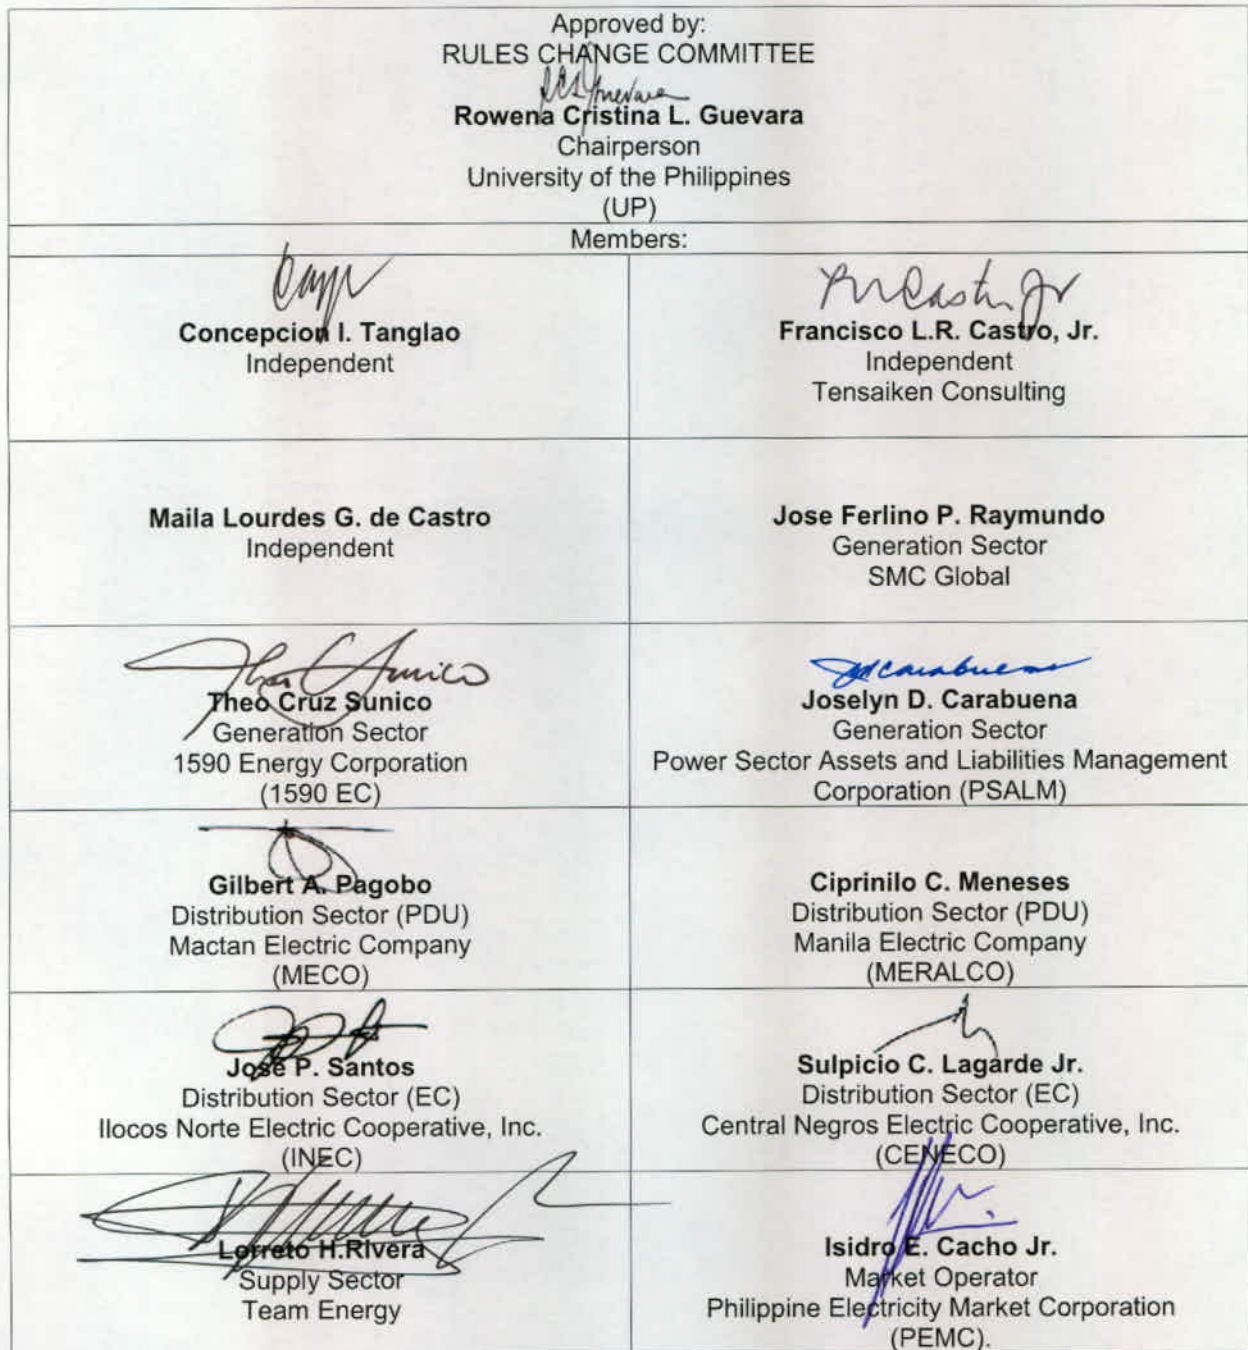 Approved by:
RULES CHANGE COMMITTEE
Rowena Cristina L. Guevara
Chairperson
University of the Philippines
(UP)
Members:
Concepcion I. Tanglao
Independent
Francisco L.R. Castro, Jr.
Independent
Tensaiken Consulting
Maila Lourdes G. de Castro
Independent
Jose Ferlino P. Raymundo
Generation Sector
SMC Global
Theo Cruz Sunico
Generation Sector
1590 Energy Corporation
(1590 EC)
Joselyn D. Carabuena
Generation Sector
Power Sector Assets and Liabilities Management
Corporation (PSALM)
Gilbert A. Pagobo
Distribution Sector (PDU)
Mactan Electric Company
(MECO)
Ciprinilo C. Meneses
Distribution Sector (PDU)
Manila Electric Company
(MERALCO)
Jose P. Santos
Distribution Sector (EC)
Ilocos Norte Electric Cooperative, Inc.
(INEC)
Sulpicio C. Lagarde Jr.
Distribution Sector (EC)
Central Negros Electric Cooperative, Inc.
(CENECO)
Lorreto H.Rivera
Supply Sector
Team Energy
Isidro E. Cacho Jr.
Market Operator
Philippine Electricity Market Corporation
(PEMC).